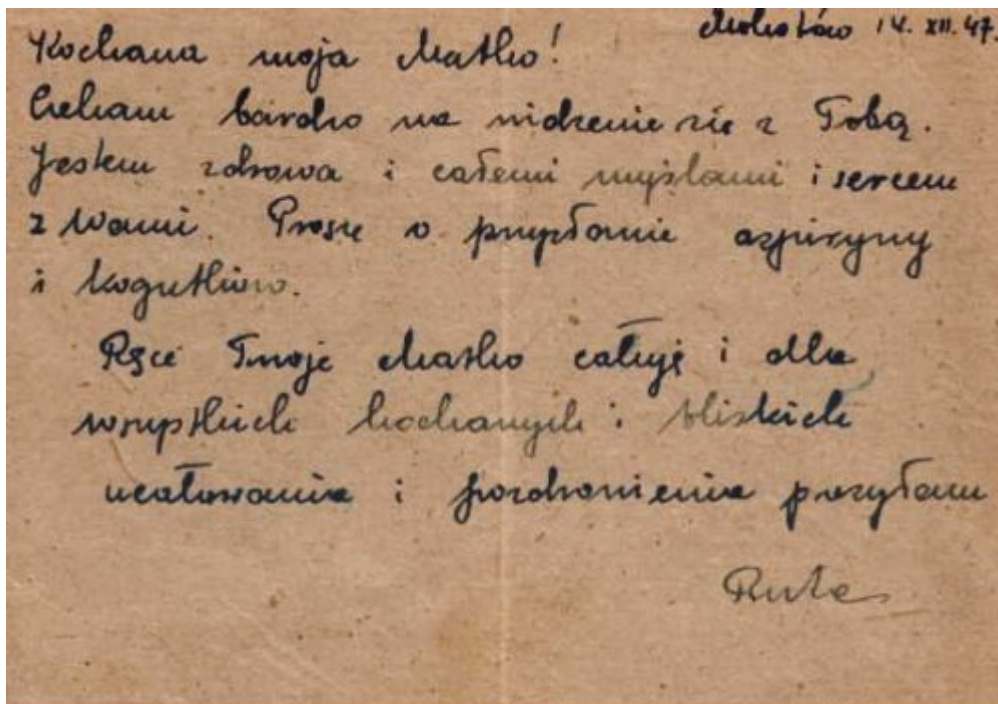 Mokotów 14. XII. 47.
Kochana moja Matko!
Czekam bardzo na widzenie się z Tobą.
Jestem zdrowa i całemi myślami i sercem
z Wami. Proszę o przysłanie aspiryny
i kogutków.
Ręce Twoje Matko całuję i dla
wszystkich kochanych i bliskich
ucałowania i pozdrowienia przesyłam
Ruta